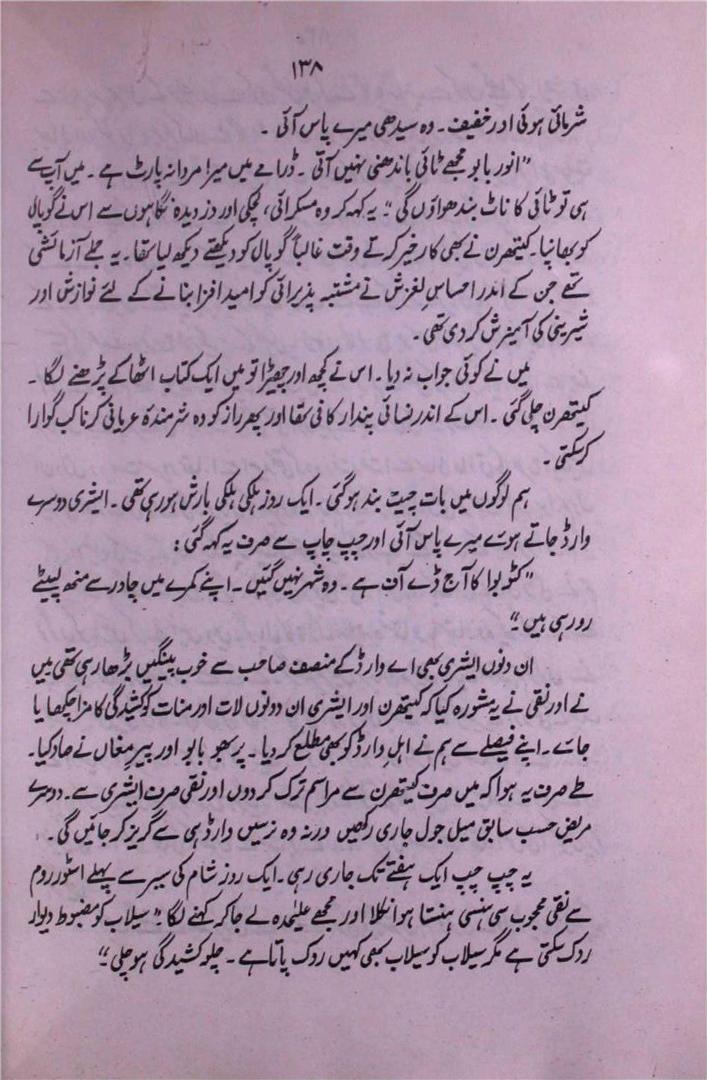 ۱۳۸
شرمائی ہوئی اور خفیف۔ وہ سیدھی میرے پاس آئی ۔
"انور بابو مجھے ٹائی باندھنی نہیں آتی ۔ ڈرامے میں میرا مردانہ پارٹ ہے ۔ میں آپ سے
ہی تو ٹائی کا ناٹ بندھواؤں گی" یہ کہہ کر وہ مسکرائی، لچکی اور دزدیدہ نگاہوں سے اس نے گوپال
کو بھانپا۔ کیتھرن نے بھی کار خیر کرتے وقت غالباً گوپال کو دیکھتے دیکھ لیا تھا۔ یہ جملے آزمائشی
تھے جن کے اندر احساس لغزش نے مشتبہ پذیرائی کو امید افزا بنانے کے لئے نوازش اور
شیرینی کی آمیزش کر دی تھی۔
میں نے کوئی جواب نہ دیا۔ اس نے کچھ اور چھیڑا تو میں ایک کتاب اٹھا کے پڑھنے لگا ۔
کیتھرن چلی گئی ۔ اس کے اندر نسائی پندار کافی تھا اور پھر راز کو وہ شرمندۂ عریانی کرنا کب گوارا
کر سکتی ۔
ہم لوگوں میں بات چیت بند ہو گئی ۔ ایک روز ہلکی ہلکی بارش ہو رہی تھی ۔ ایشری دوسرے
وارڈ جاتے ہوئے میرے پاس آئی اور چپ چاپ سے صرف یہ کہہ گئی :
"کٹو بوا کا آج ڈے آف ہے ۔ وہ شہر نہیں گئیں ۔ اپنے کمرے میں چادر سے منھ لپیٹے
رو رہی ہیں"
ان دنوں ایشری بھی اے وارڈ کے منصف صاحب سے خوب پینگیں بڑھا رہی تھی میں
نے اور نقی نے یہ مشورہ کیا کہ کیتھرن اور ایشری ان دونوں لات اور منات کو کشیدگی کا مزا چکھایا
جائے ۔ اپنے فیصلے سے ہم نے اہل وارڈ کو بھی مطلع کر دیا ۔ پربھو بابو اور پیر مغاں نے صاد کیا۔
طے صرف یہ ہوا کہ میں صرف کیتھرن سے مراسم ترک کر دوں اور نقی صرف ایشری سے۔ دوسرے
مریض حسب سابق میل جول جاری رکھیں ورنہ وہ نرسیں وارڈ ہی سے گریز کر جائیں گی۔
یہ چپ چپ ایک ہفتے تک جاری رہی۔ ایک روز شام کی سیر سے پہلے اسٹور روم
سے نقی محجوب سی ہنسی ہنستا ہوا نکلا اور مجھے علیحدہ لے جا کر کہنے لگا "سیلاب کو مضبوط دیوار
روک سکتی ہے مگر سیلاب کو سیلاب بھی کہیں روک پاتا ہے ۔ چلو کشیدگی ہو چلی"